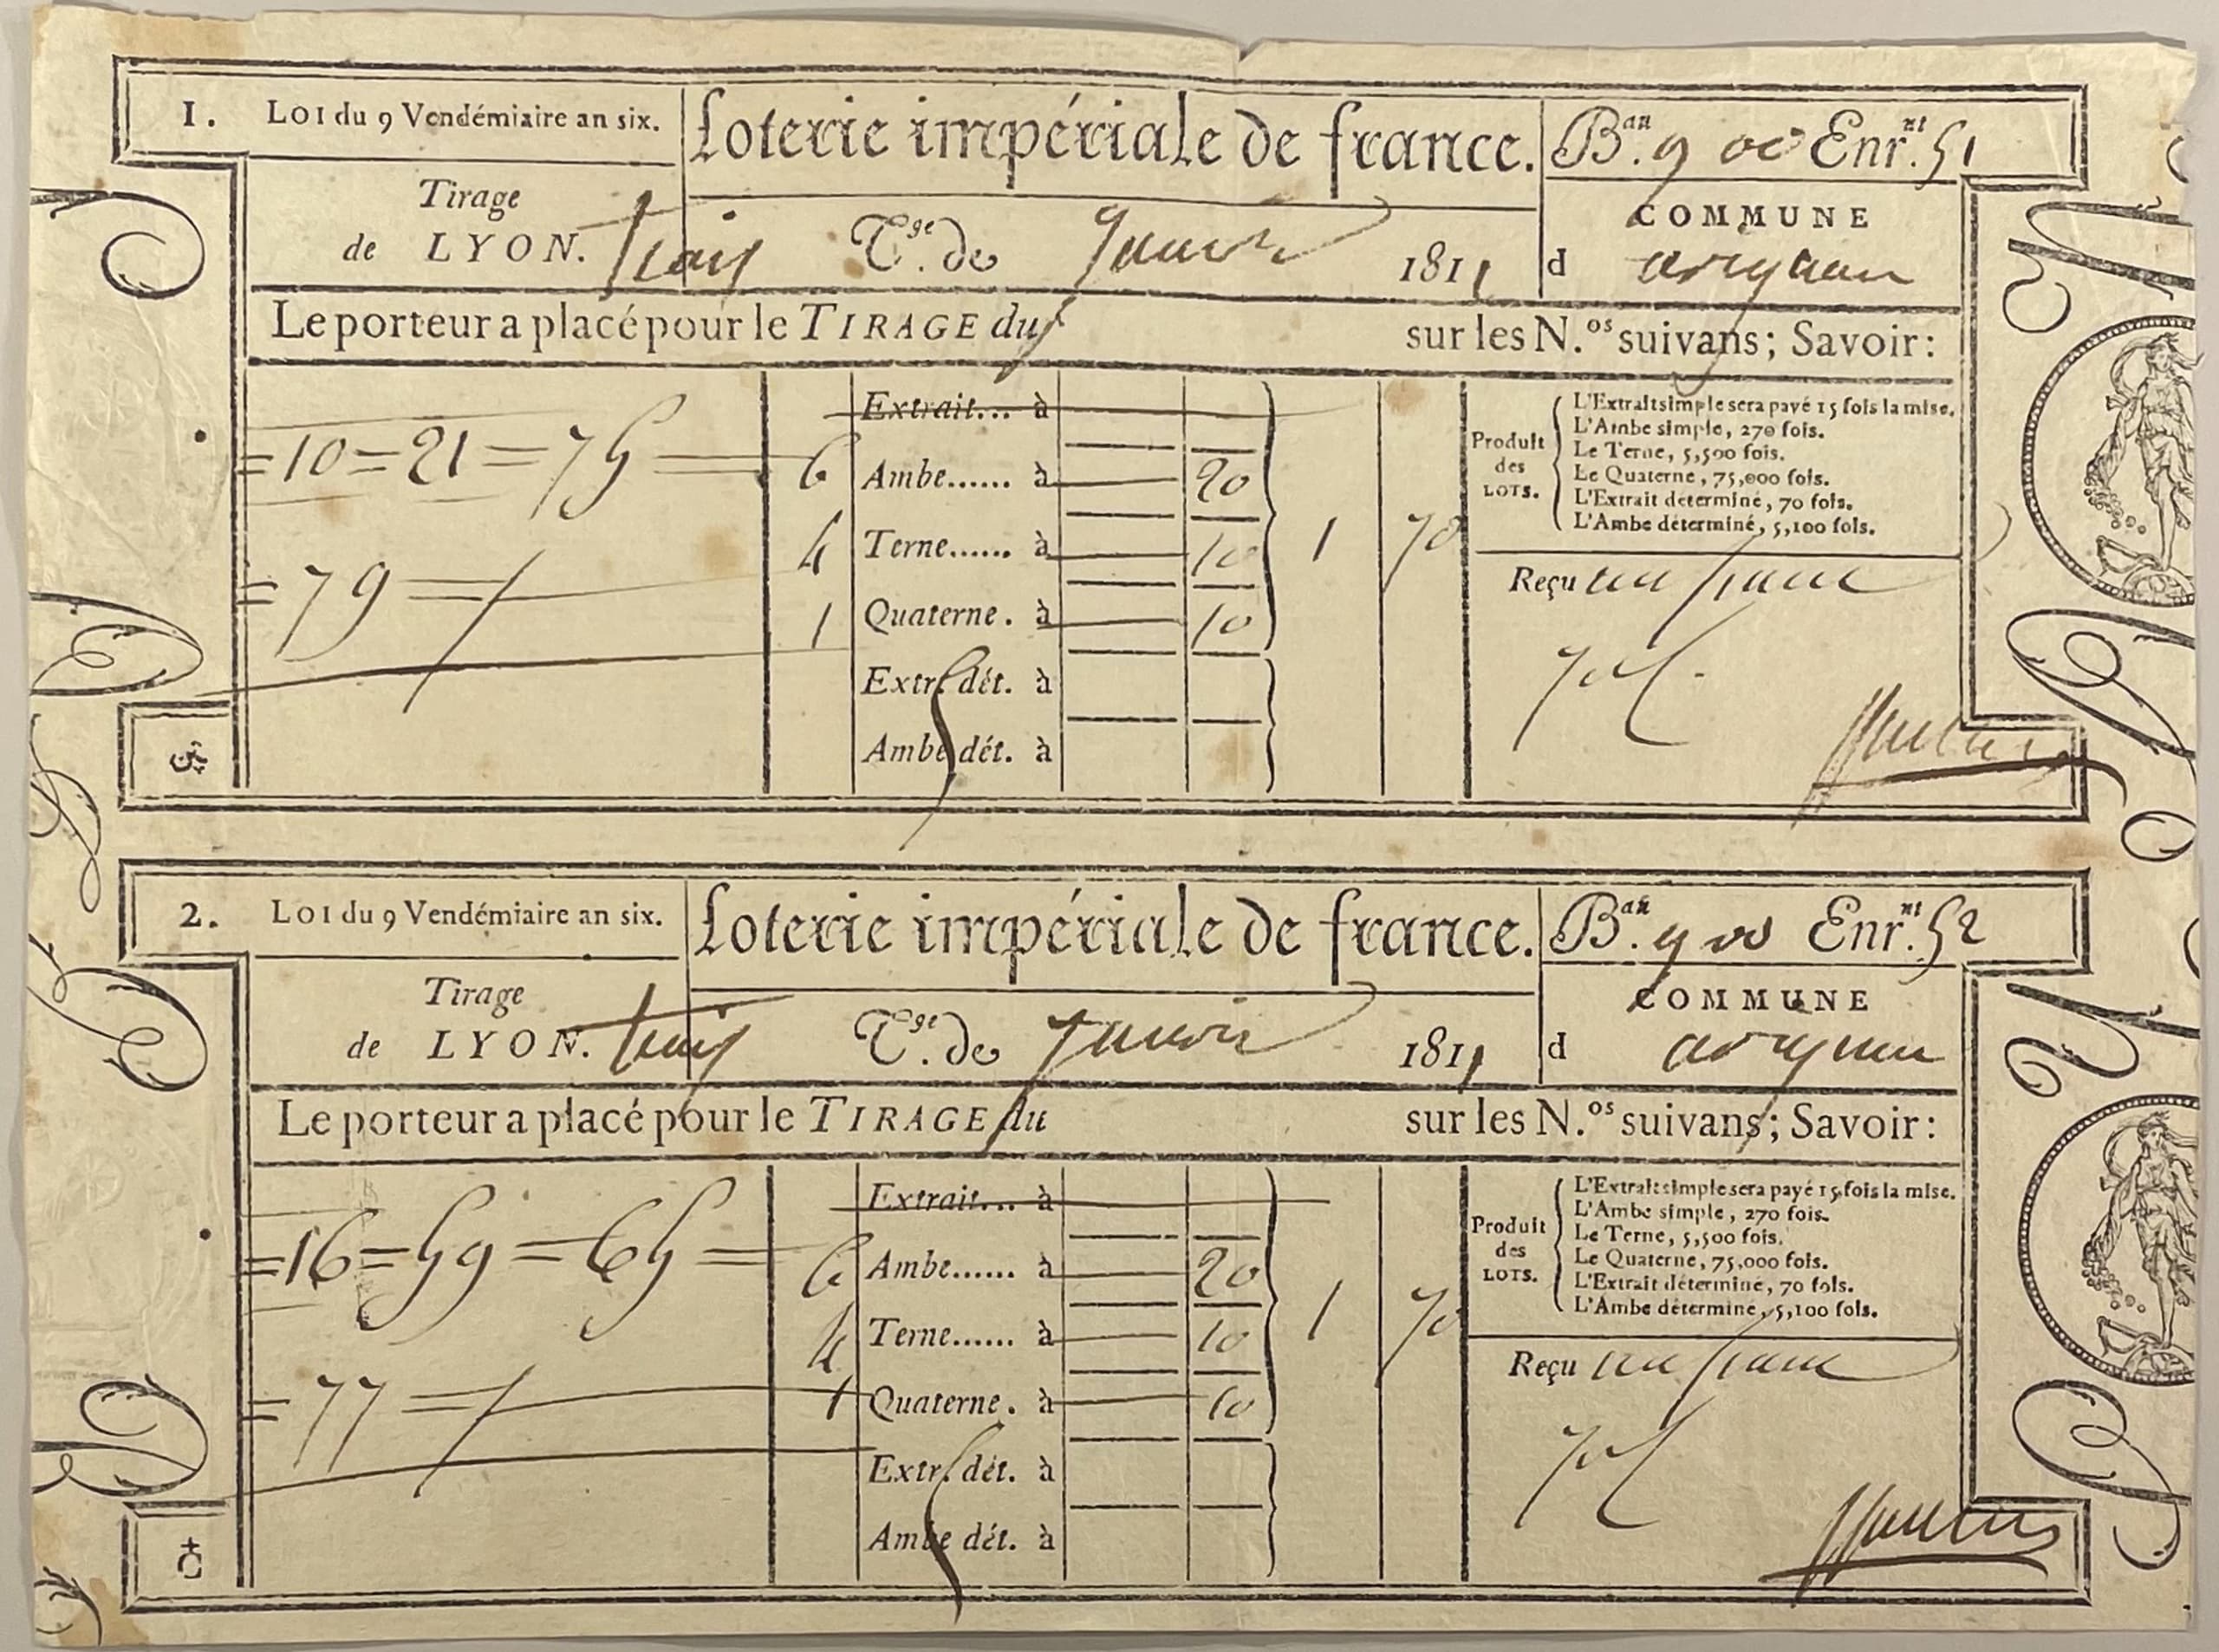 1. LOI du 9 Vendémiaire an six. Loterie impériale de france. B.au 900 Enr.nt 51
Tirage
de LYON. trois T.ge de Janvier 1811
COMMUNE
d avignon
Le porteur a placé pour le TIRAGE du sur les N.os suivans; Savoir:
=10=21=75=
=79=
Extrait... à
6 Ambe...... à 20
4 Terne...... à 10
1 Quaterne. à 10
1 70
Extr. dét. à
Ambe dét. à
Produit des LOTS.
L'Extrait simple sera payé 15 fois la mise.
L'Ambe simple, 270 fois.
Le Terne, 5,500 fois.
Le Quaterne, 75,000 fois.
L'Extrait determiné, 70 fois.
L'Ambe déterminé, 5,100 fois.
Reçu un franc
70 c.
2. LOI du 9 Vendémiaire an six. Loterie impériale de france. B.au 900 Enr.nt 52
Tirage
de LYON. trois T.ge de Janvier 1811
COMMUNE
d avignon
Le porteur a placé pour le TIRAGE du sur les N.os suivans; Savoir:
=16=59=65=
=77=
Extrait... à
6 Ambe...... à 20
4 Terne...... à 10
1 Quaterne. à 10
1 70
Extr. dét. à
Ambe dét. à
Produit des LOTS.
L'Extrait simple sera payé 15 fois la mise.
L'Ambe simple, 270 fois.
Le Terne, 5,500 fois.
Le Quaterne, 75,000 fois.
L'Extrait déterminé, 70 fois.
L'Ambe déterminé, 5,100 fois.
Reçu un franc
70 c.